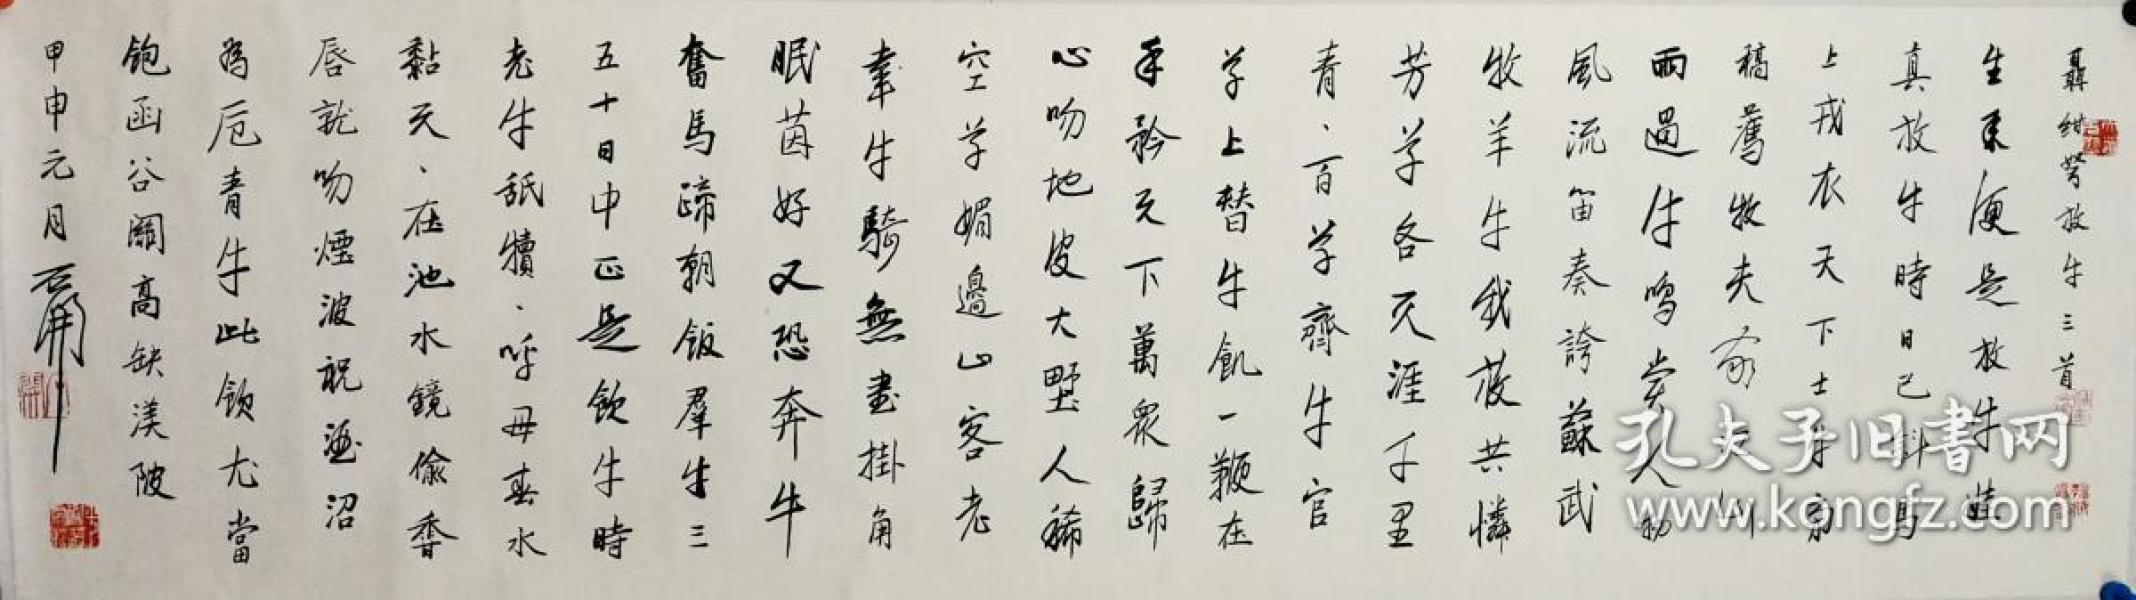 聶紺弩放牛三首
生來便是放牛娃
真放牛時日已斜馬
上戎衣天下士牛旁
稿薦牧夫家江山
雨過牛鳴賞人物
風流笛奏誇蘇武
牧羊牛我放共憐
芳草各天涯千里
青、百草齊牛官
草上替牛飢一鞭在
手矜天下萬衆歸
心吻地皮大墅人稀
空草媚邊山客老
韋牛騎無書掛角
眠茵好又恐奔牛
奮馬蹄朝飯羣牛三
五十日中正是飲牛時
老牛舐犢、呼母春水
黏天、在池水鏡偷香
唇就吻煙波祝酒沼
為卮青牛此飲尤當
飽函谷關高缺渼陂
甲申元月 石開
孔夫子旧書网
www.kongfz.com